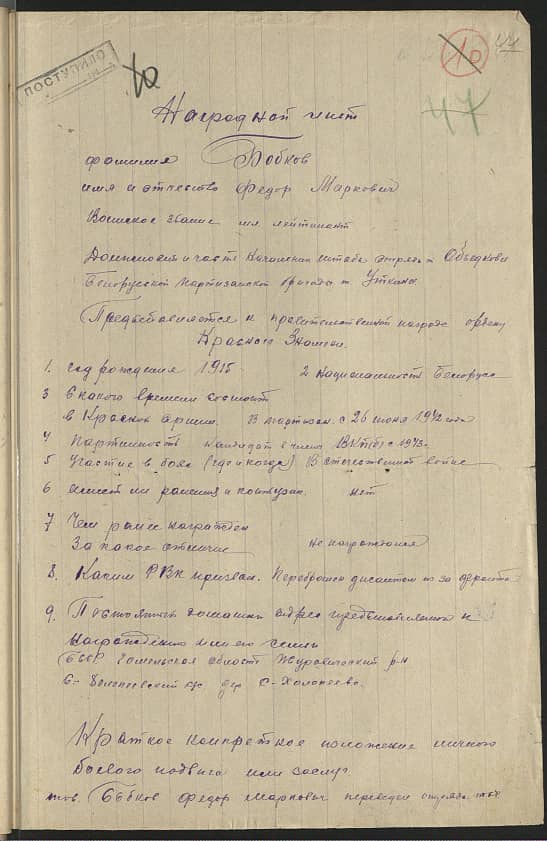 ПОСТУПИЛО
10
44
47
Наградной лист
фамилия Бобков
имя и отчество Федор Маркович
Воинское звание мл лейтинант
Должность и часть Начальник штаба отряда
Белорусской партизанской бригады т Уткина
Предоставляется к правительственной награде ордену
Красного Знамени
1. год рождения 1915 2 Национальность Белорус
3 С какого времени состоит
в Красной армии. В партизан. с 26 июня 1942 года
4 Партийность кандидат в члены ВКП(б) с 1943
5 Участие в боях (где и когда) В отечественной войне
6 имеет ли ранения и контузии. нет
7 Чем ранее награжден
За какое отличие не награждался
8. Каким РВК призван. Переброшен десантом из за фронта
9. Постоянный домашний адрес представляемого к
награждению или его семьи
БССР Гомельская область Журавический р-н
с/с дер
Краткое конкретное положение личного
боевого подвига или заслуг
тов. Бобков Федор Маркович